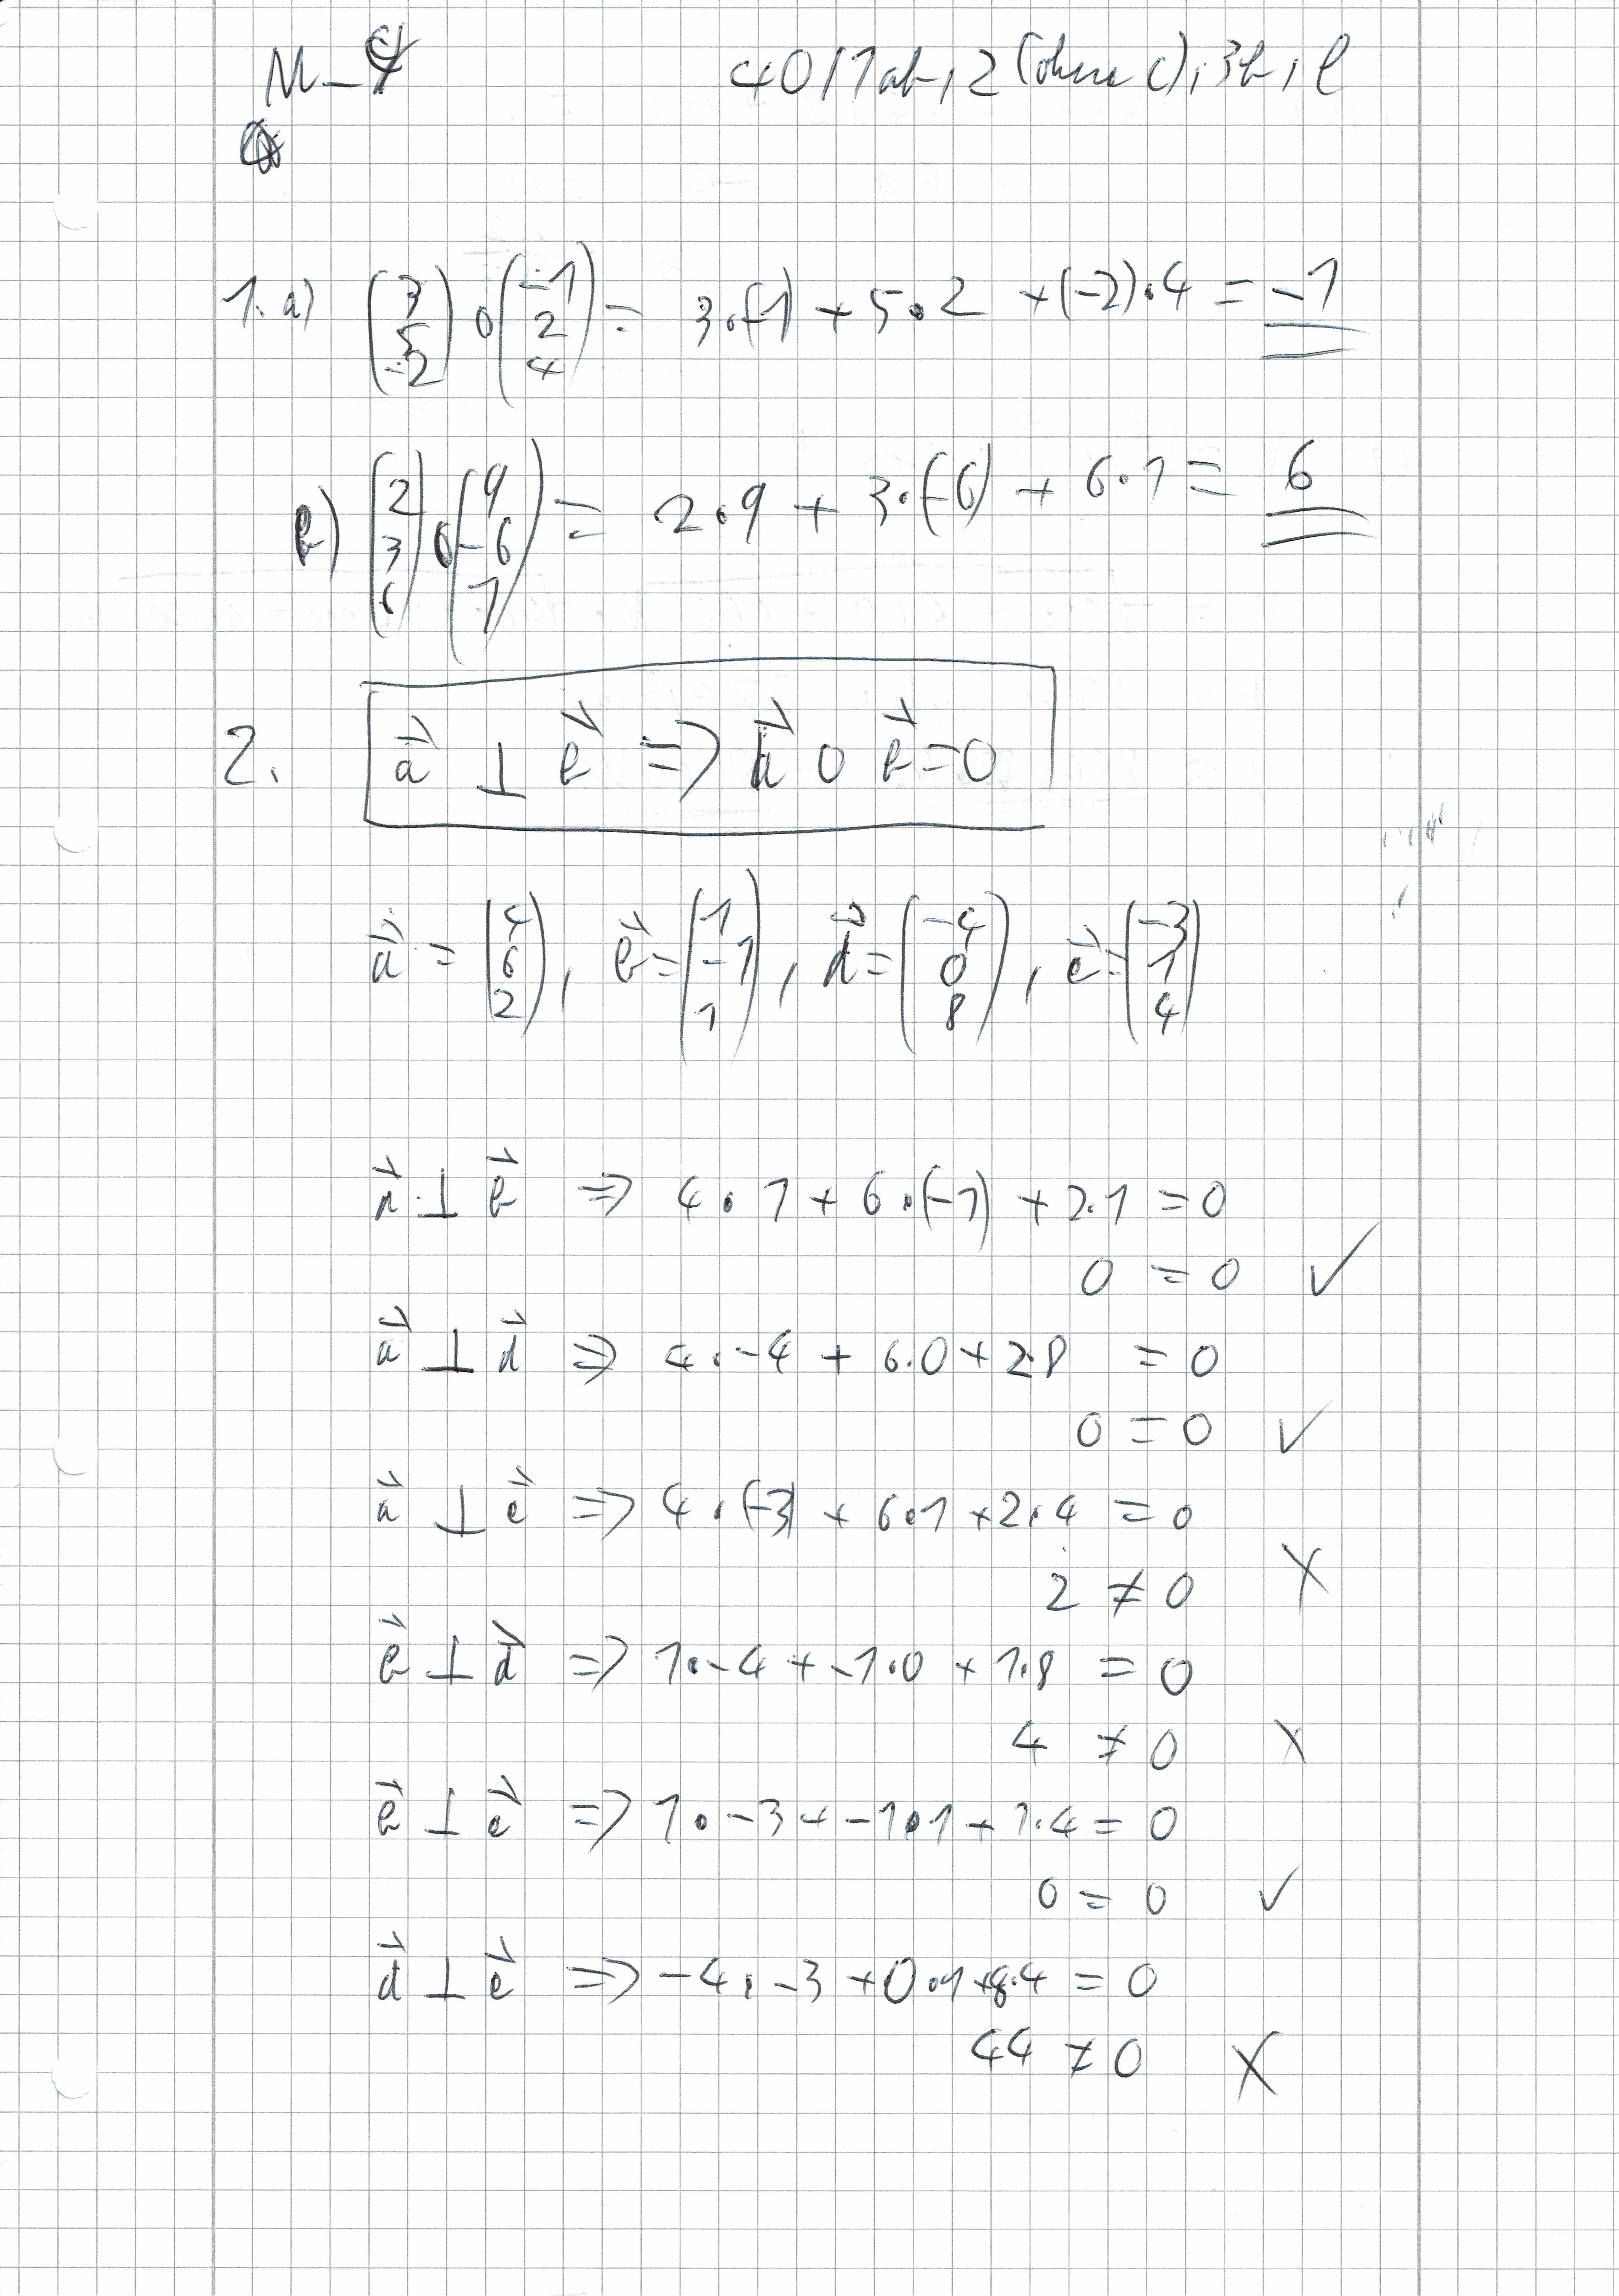 M-4 40/1ab, 2 (ohne c), 3b, e
1. a) (3 5 -2) ∘ (-1 2 4) = 3·(-1) + 5·2 + (-2)·4 = -1
b) (2 3 6) ∘ (9 -6 1) = 2·9 + 3·(-6) + 6·1 = 6
2. a⃗ ⊥ b⃗ => a⃗ ∘ b⃗ = 0
a⃗ = (4 6 2), b⃗ = (1 -1 1), d⃗ = (-4 0 8), e⃗ = (-3 1 4)
a⃗ ⊥ b⃗ => 4·1 + 6·(-1) + 2·1 = 0
0 = 0 ✓
a⃗ ⊥ d⃗ => 4·-4 + 6·0 + 2·8 = 0
0 = 0 ✓
a⃗ ⊥ e⃗ => 4·(-3) + 6·1 + 2·4 = 0
2 ≠ 0 X
b⃗ ⊥ d⃗ => 1·-4 + -1·0 + 1·8 = 0
4 ≠ 0 X
b⃗ ⊥ e⃗ => 1·-3 + -1·1 + 1·4 = 0
0 = 0 ✓
d⃗ ⊥ e⃗ => -4·-3 + 0·1 + 8·4 = 0
44 ≠ 0 X